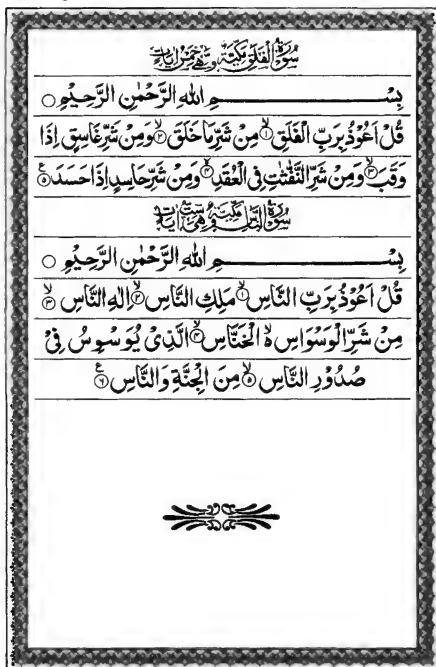 سُوْرَةُ الْفَلَقِ مَكِّيَّةٌ وَّهِيَ خَمْسُ اٰيَاتٍ
بِسْـــــــــــمِ اللهِ الرَّحْمٰنِ الرَّحِيْمِ ○
قُلْ اَعُوْذُ بِرَبِّ الْفَلَقِ ۙ﴿۱﴾ مِنْ شَرِّ مَا خَلَقَ ۙ﴿۲﴾ وَمِنْ شَرِّ غَاسِقٍ اِذَا
وَقَبَ ۙ﴿۳﴾ وَمِنْ شَرِّ النَّفّٰثٰتِ فِی الْعُقَدِ ۙ﴿۴﴾ وَمِنْ شَرِّ حَاسِدٍ اِذَا حَسَدَ ﴿۵﴾ ع
سُوْرَةُ النَّاسِ مَكِّيَّةٌ وَّهِيَ سِتُّ اٰيَاتٍ
بِسْـــــــــــمِ اللهِ الرَّحْمٰنِ الرَّحِيْمِ ○
قُلْ اَعُوْذُ بِرَبِّ النَّاسِ ۙ﴿۱﴾ مَلِكِ النَّاسِ ۙ﴿۲﴾ اِلٰهِ النَّاسِ ۙ﴿۳﴾
مِنْ شَرِّ الْوَسْوَاسِ ۬ۙ الْخَنَّاسِ ۙ﴿۴﴾ الَّذِیْ یُوَسْوِسُ فِیْ
صُدُوْرِ النَّاسِ ۙ﴿۵﴾ مِنَ الْجِنَّةِ وَالنَّاسِ ﴿۶﴾ ع